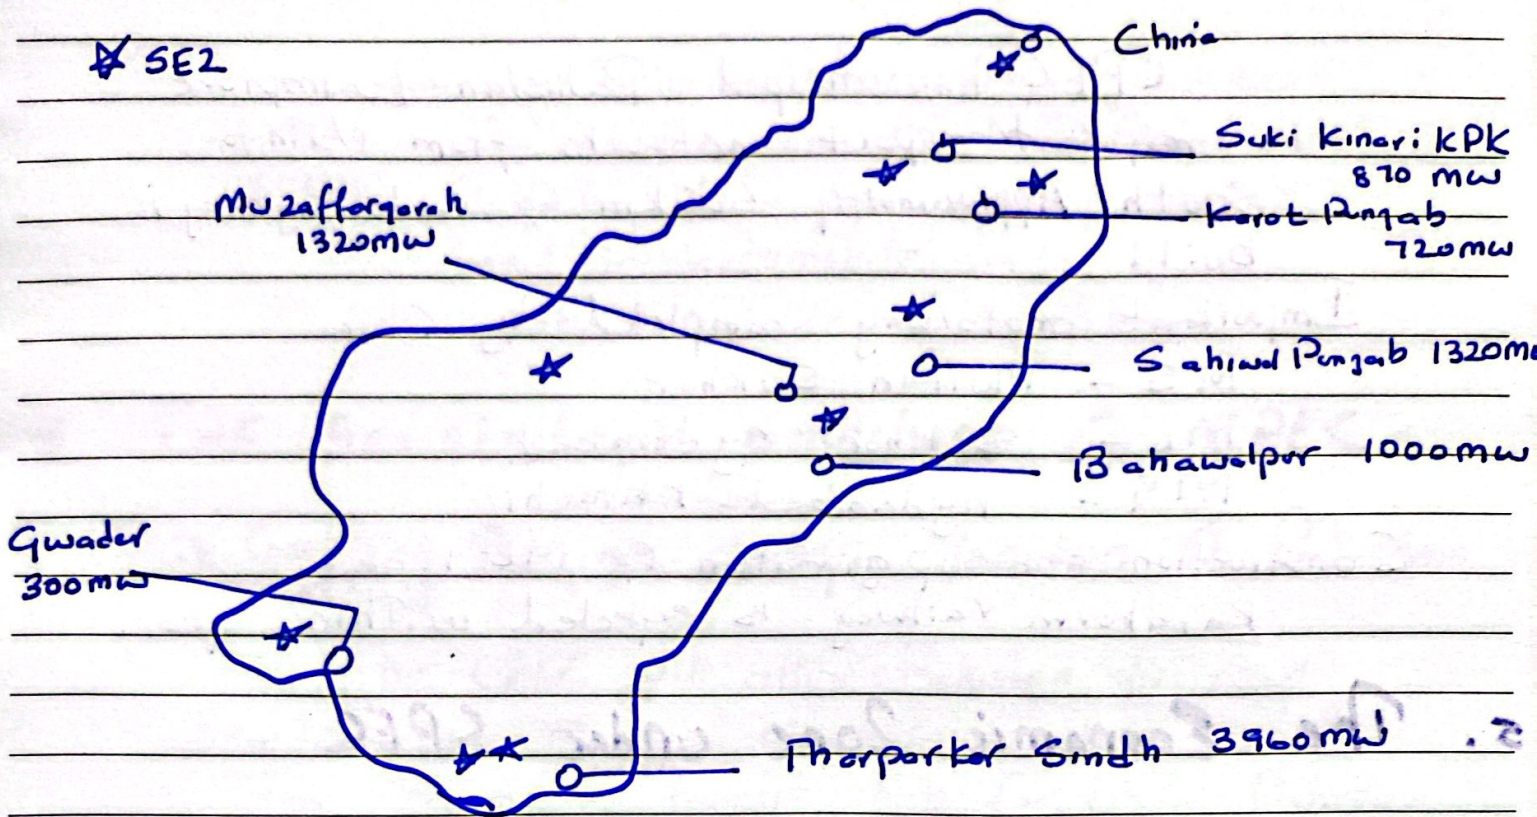 SEZ
China
Suki Kinari KPK
870 MW
Karot Punjab
720MW
Muzaffargarah
1320MW
Sahiwal Punjab 1320MW
Bahawalpur 1000MW
Gwader
300MW
Tharparkar Sindh 3960MW